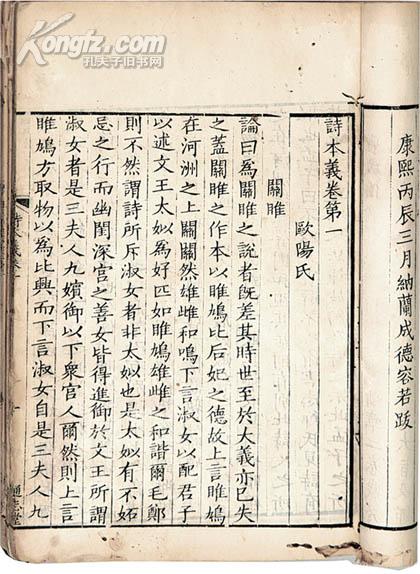 Kongfz.com
孔夫子旧书网
康熙丙辰三月納蘭成德容若跋
詩本義卷第一
歐陽氏
關雎
論曰為關雎之說者旣差其時世至扵大義亦已失
之蓋關雎之作本以雎鳩比后妃之德故上言雎鳩
在河洲之上關關然雄雌和鳴下言淑女以配君子
以述文王太姒為好匹如雎鳩雄雌之和諧爾毛鄭
則不然謂詩所斥淑女者非太姒也是太姒有不妬
忌之行而幽閨深宫之善女皆得進御扵文王所謂
淑女者是三夫人九嬪御以下衆官人爾然則上言
雎鳩方取物以為比興而下言淑女自是三夫人九
通志堂